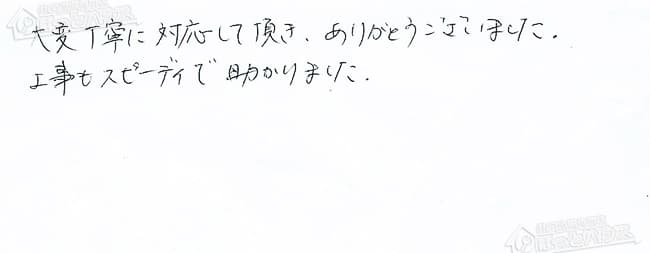 大変丁寧に対応して頂き、ありがとうございました。
工事もスピーディで助かりました。